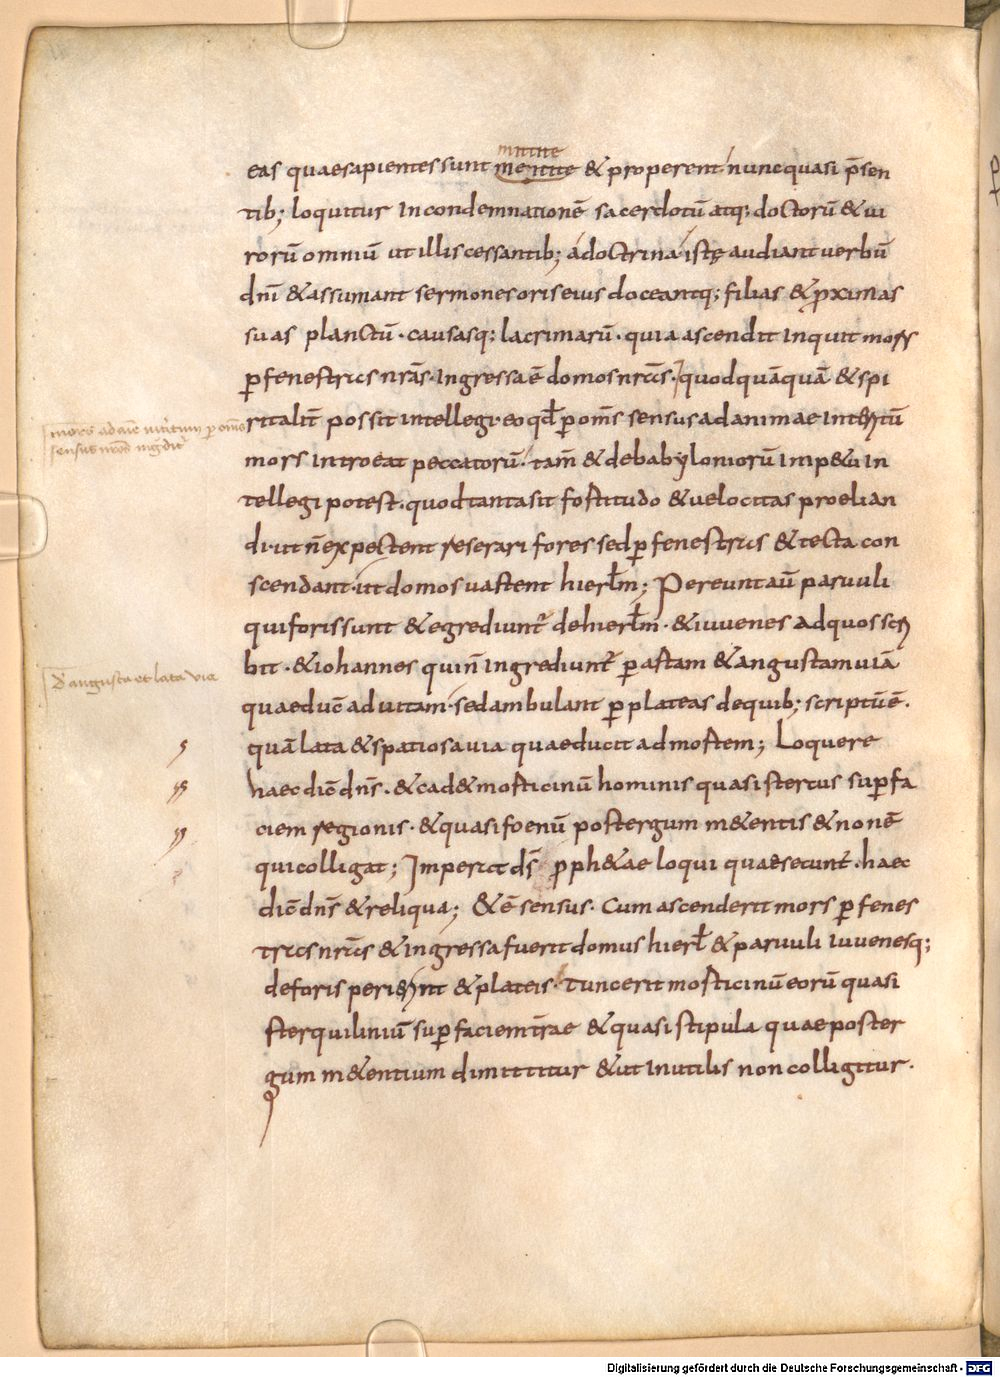 mittite
eas quae sapientes sunt mentite & properent nunc quasi p̄sen
tib; loquitur In condemnationē sacerdotū atq; doctorū & ui
rorū omniū ut illis cessantib; a doctrina istę audiant uerbū
dn̄i & assumant sermones oris eius doceantq; filias & ꝓximas
suas planctū · causasq; lacrimarū · quia ascendit Inquit mors
ꝑ fenestras nr̄as · Ingressa ē domos nr̄as · quod quāquā & spi
ritalit̄ possit intellegi · eo qđ ꝑ om̄s sensus ad animae Interitū
mors Introeat peccatorū · tam̄ & de babyloniorū Imp&u In
tellegi potest · quod tanta sit fortitudo & uelocitas proelian
di · ut n̄ expectent reserari fores sed ꝑ fenestras & tecta con
scendant · ut domos uastent hierl̄m; Pereunt aū paruuli
qui foris sunt & egrediunt̄ de hierl̄m · & iuuenes ad quos scri
bit · & iohannes qui n̄ Ingrediunt̄ ꝑ artam & angustam uiā
quae duc̄ ad uitam · sed ambulant ꝑ plateas de quib; scriptū ē ·
quā lata & spatiosa uia quae ducit ad mortem; Loquere
haec dic̄ dn̄s · & cad& morticinū hominis quasi stercus suꝑ fa
ciem regionis · & quasi foenū post ergum m&entis & non ē
qui colligat; Imperat ds̄ ꝓph&ae loqui quae secunt̄ · haec
dic̄ dn̄s & reliqua; & ē sensus · Cum ascenderit mors ꝑ fenes
tras nr̄as & ingressa fuerit domus hierl̄ & paruuli Iuuenesq;
deforis perierint & plateis · tunc erit morticinū eorū quasi
sterquiliniū suꝑ faciem tr̄ae & quasi stipula quae post er
gum m&entium dimittitur & ut Inutilis non colligitur ·
mors ad aīe interitum ꝑ om̄s
sensus nr̄os ingredit̄
De angusta et lata via
Digitalisierung gefördert durch die Deutsche Forschungsgemeinschaft - DFG